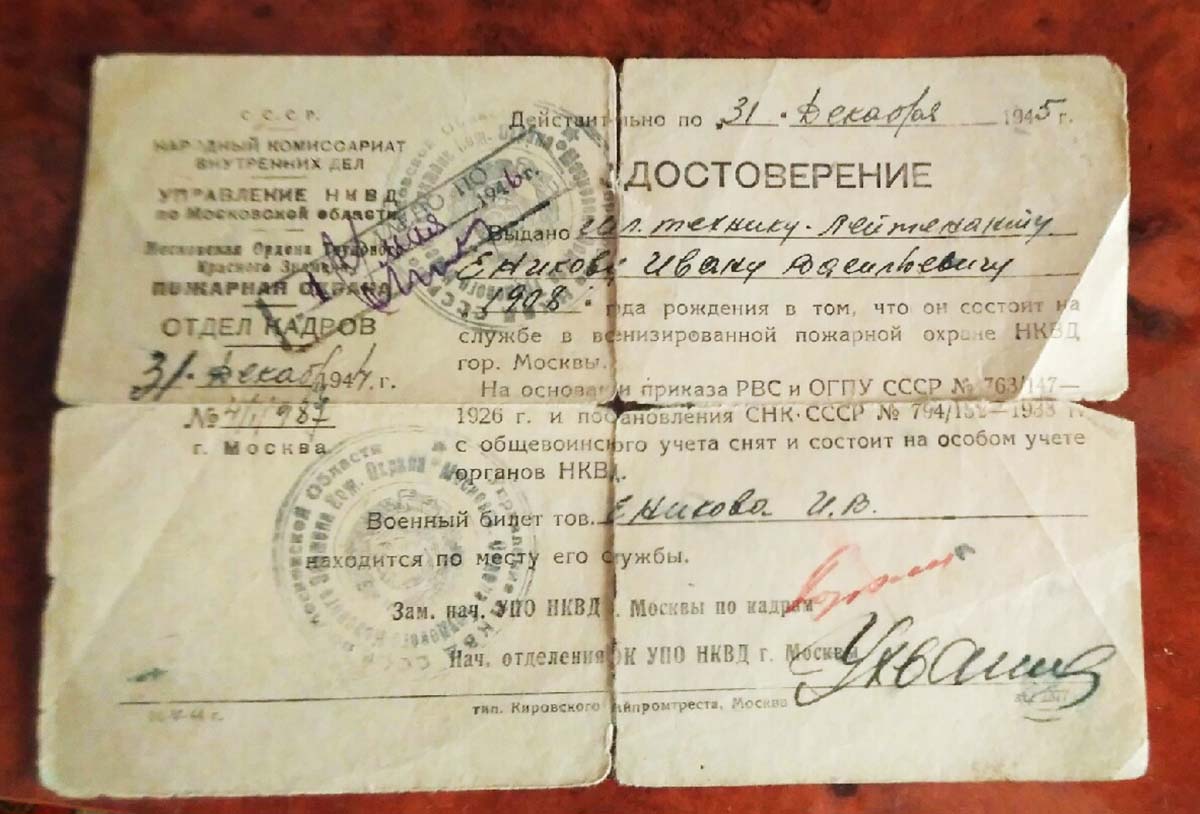 С С С Р.
НАРОДНЫЙ КОМИССАРИАТ
ВНУТРЕННИХ ДЕЛ
УПРАВЛЕНИЕ НКВД
по Московской области
Московская Ордена Трудового
Красного Знамени
ПОЖАРНАЯ ОХРАНА
ОТДЕЛ КАДРОВ
31. Декабря 1944 г.
№
г. Москва
1946 г.
Действительно по 31. Декабря 1945 г.
УДОСТОВЕРЕНИЕ
Выдано мл. технику-лейтенанту
Еникову Ивану Васильевичу
1908 года рождения в том, что он состоит на
службе в военизированной пожарной охране НКВД
гор. Москвы.
На основании приказа РВС и ОГПУ СССР № 763/147—
1926 г. и постановления СНК СССР № 794/ —1933 г.
с общевоинского учета снят и состоит на особом учете
органов НКВД.
Военный билет тов. Еникова И.В.
находится по месту его службы.
Зам. нач. УПО НКВД г. Москвы по кадрам
Нач. отделения ОК УПО НКВД г. Москвы
тип. Кировского райпромтреста, Москва